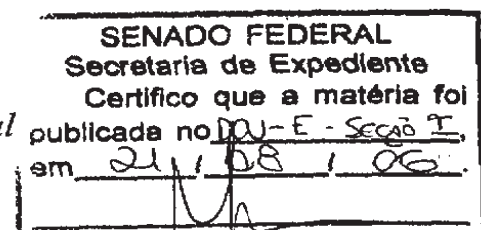 SENADO FEDERAL
Secretaria de Expediente
Certifico que a matéria foi
al publicada no DOU-E - Secção I,
em 21 / 08 / 06.